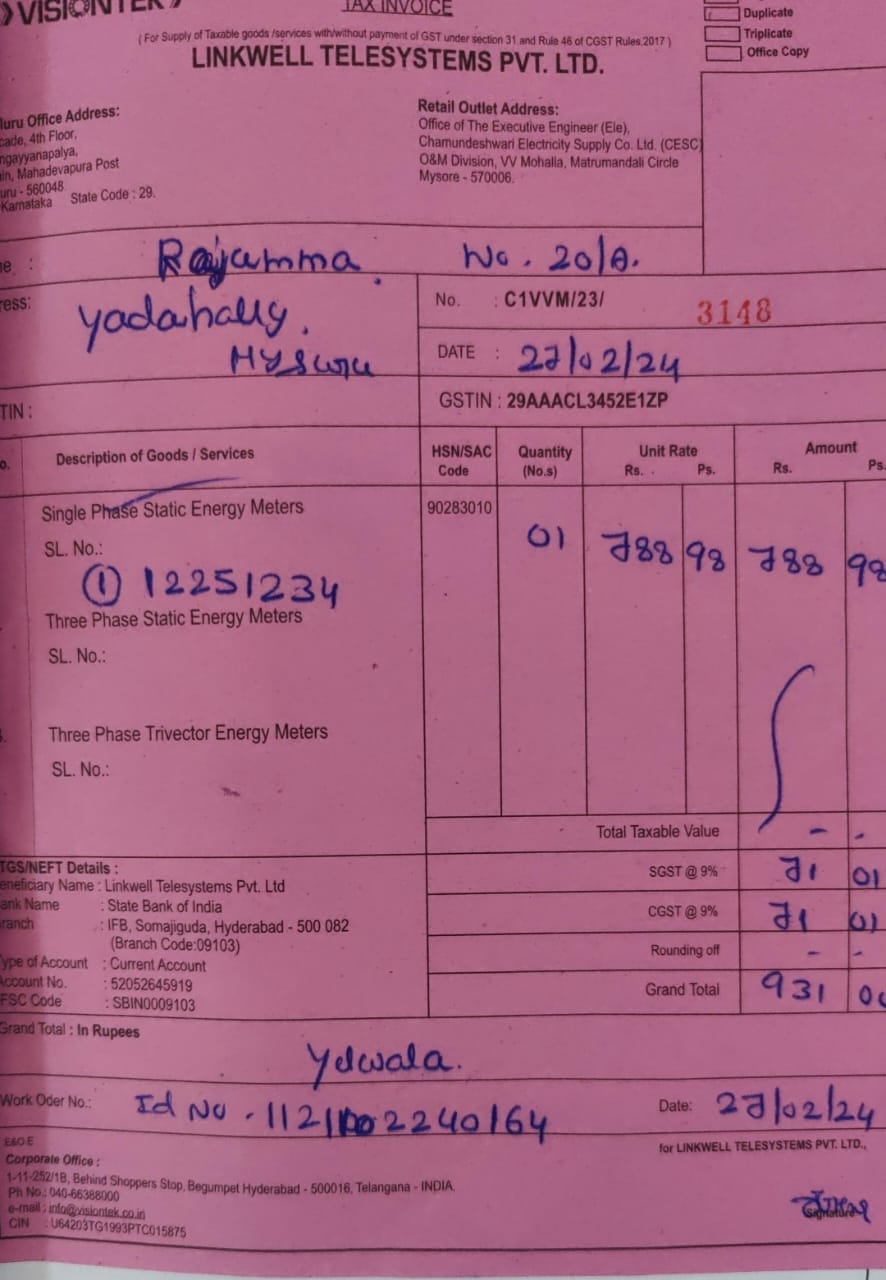 VISIONTEK
TAX INVOICE
Duplicate
Triplicate
Office Copy
( For Supply of Taxable goods /services with/without payment of GST under section 31 and Rule 46 of CGST Rules.2017 )
LINKWELL TELESYSTEMS PVT. LTD.
luru Office Address:
cade, 4th Floor,
ngayyanapalya,
in, Mahadevapura Post
uru - 560048
Karnataka State Code : 29.
Retail Outlet Address:
Office of The Executive Engineer (Ele),
Chamundeshwari Electricity Supply Co. Ltd. (CESC)
O&M Division, VV Mohalla, Matrumandali Circle
Mysore - 570006.
e : Rajamma No. 20/A.
ress: Yadahally.
No. : C1VVM/23/ 3148
DATE : 27/02/24
TIN :
GSTIN : 29AAACL3452E1ZP
o. Description of Goods / Services HSN/SAC Code Quantity (No.s) Unit Rate Rs. Ps. Amount Rs. Ps.
Single Phase Static Energy Meters 90283010
SL. No.: 01 788 98 788 98
① 12251234
Three Phase Static Energy Meters
SL. No.:
Three Phase Trivector Energy Meters
SL. No.:
Total Taxable Value - -
SGST @ 9% 71 01
CGST @ 9% 71 01
Rounding off - -
Grand Total 931 00
TGS/NEFT Details :
eneficiary Name : Linkwell Telesystems Pvt. Ltd
ank Name : State Bank of India
ranch : IFB, Somajiguda, Hyderabad - 500 082
(Branch Code:09103)
ype of Account : Current Account
Account No. : 52052645919
FSC Code : SBIN0009103
Grand Total : In Rupees
Yelwala.
Work Oder No.: Id No. Date: 27/02/24
E&O.E
for LINKWELL TELESYSTEMS PVT. LTD.,
Corporate Office :
1-11-252/1B, Behind Shoppers Stop, Begumpet Hyderabad - 500016, Telangana - INDIA.
Ph No.: 040-66388000
e-mail : info@visiontek.co.in
CIN : U64203TG1993PTC015875
Signature